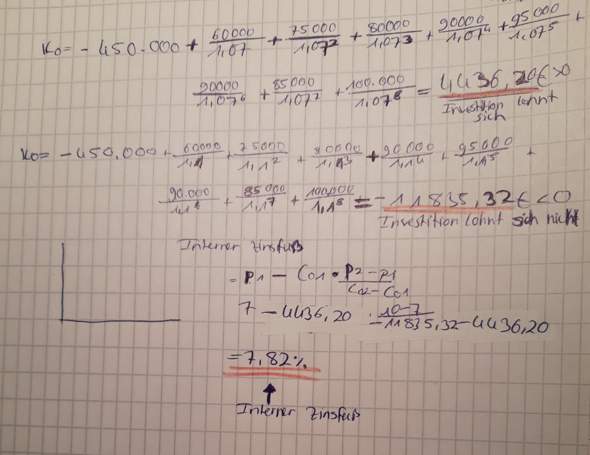 K₀ = - 450.000 + 60000/1,07 + 75000/1,07² + 80000/1,07³ + 90000/1,07⁴ + 95000/1,07⁵ +
90000/1,07⁶ + 85000/1,07⁷ + 100.000/1,07⁸ = 4436,20€ > 0
Investition lohnt
sich
K₀ = - 450.000 + 60000/1,1 + 75000/1,1² + 80000/1,1³ + 90000/1,1⁴ + 95000/1,1⁵ +
90.000/1,1⁶ + 85000/1,1⁷ + 100000/1,1⁸ = - 11835,32€ < 0
Investition lohnt sich nicht
Interner Zinsfuß
= P1 - C01 • P2-P1/C02-C01
7 - 4436,20 • 10-7/-11835,32-4436,20
= 7,82%
Interner Zinsfuß